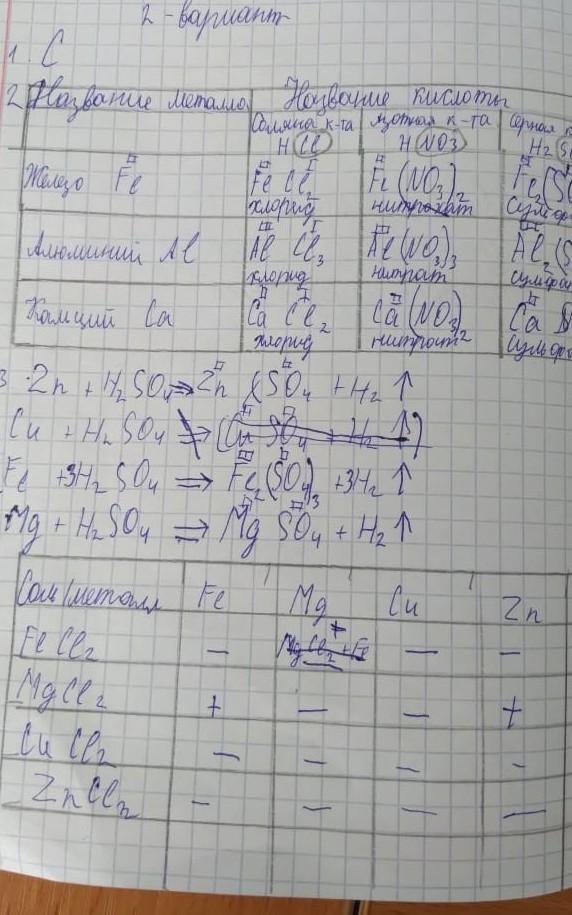 2 - вариант
1. C
2 Название металла Название кислоты
Соляна к-та азотная к-та серная к
H Cl H NO3 H2 S
Железо Fe II
II I
Fe Cl2
хлорид
II
Fe (NO3)2
нитрат
Fe2 (SO
сульфа
Алюминий Al
III I
Al Cl3
хлорид
III
Al (NO3)3
нитрат
III
Al2 (S
сульфа
Камций Ca
II I
Ca Cl2
хлорид
II
Ca (NO3)2
нитрат
II
Ca S
сульфа
3 Zn + H2SO4 => Zn SO4 + H2 ↑
Cu + H2SO4 => (Cu SO4 + H2 ↑)
Fe + 3H2SO4 => Fe2(SO4)3 + 3H2 ↑
Mg + H2SO4 => Mg SO4 + H2 ↑
Соли/металл Fe Mg Cu Zn
FeCl2 — + — —
MgCl2 + — — +
CuCl2 — — — -
ZnCl2 - — — —